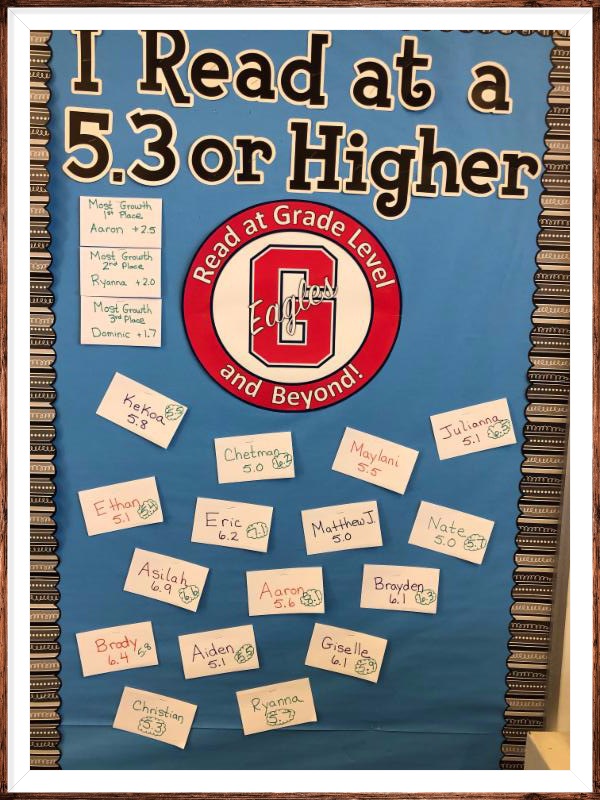 I Read at a
5.3 or Higher
Most Growth
1st Place
Aaron +2.5
Most Growth
2nd Place
Ryanna +2.0
Most Growth
3rd Place
Dominic +1.7
Read at Grade Level
G
Eagles
and Beyond!
Kekoa
5.8
Chetman
5.0
Maylani
5.5
Julianna
5.1 6.5
Ethan
5.1
Eric
6.2 7.1
Matthew J.
5.0
Nate
5.0 5.7
Asilah
6.9
Aaron
5.6 8.1
Brayden
6.1 6.3
Brody 5.8
6.4
Aiden
5.1 5.5
Giselle
6.1 5.9
Christian
5.3
Ryanna
5.7